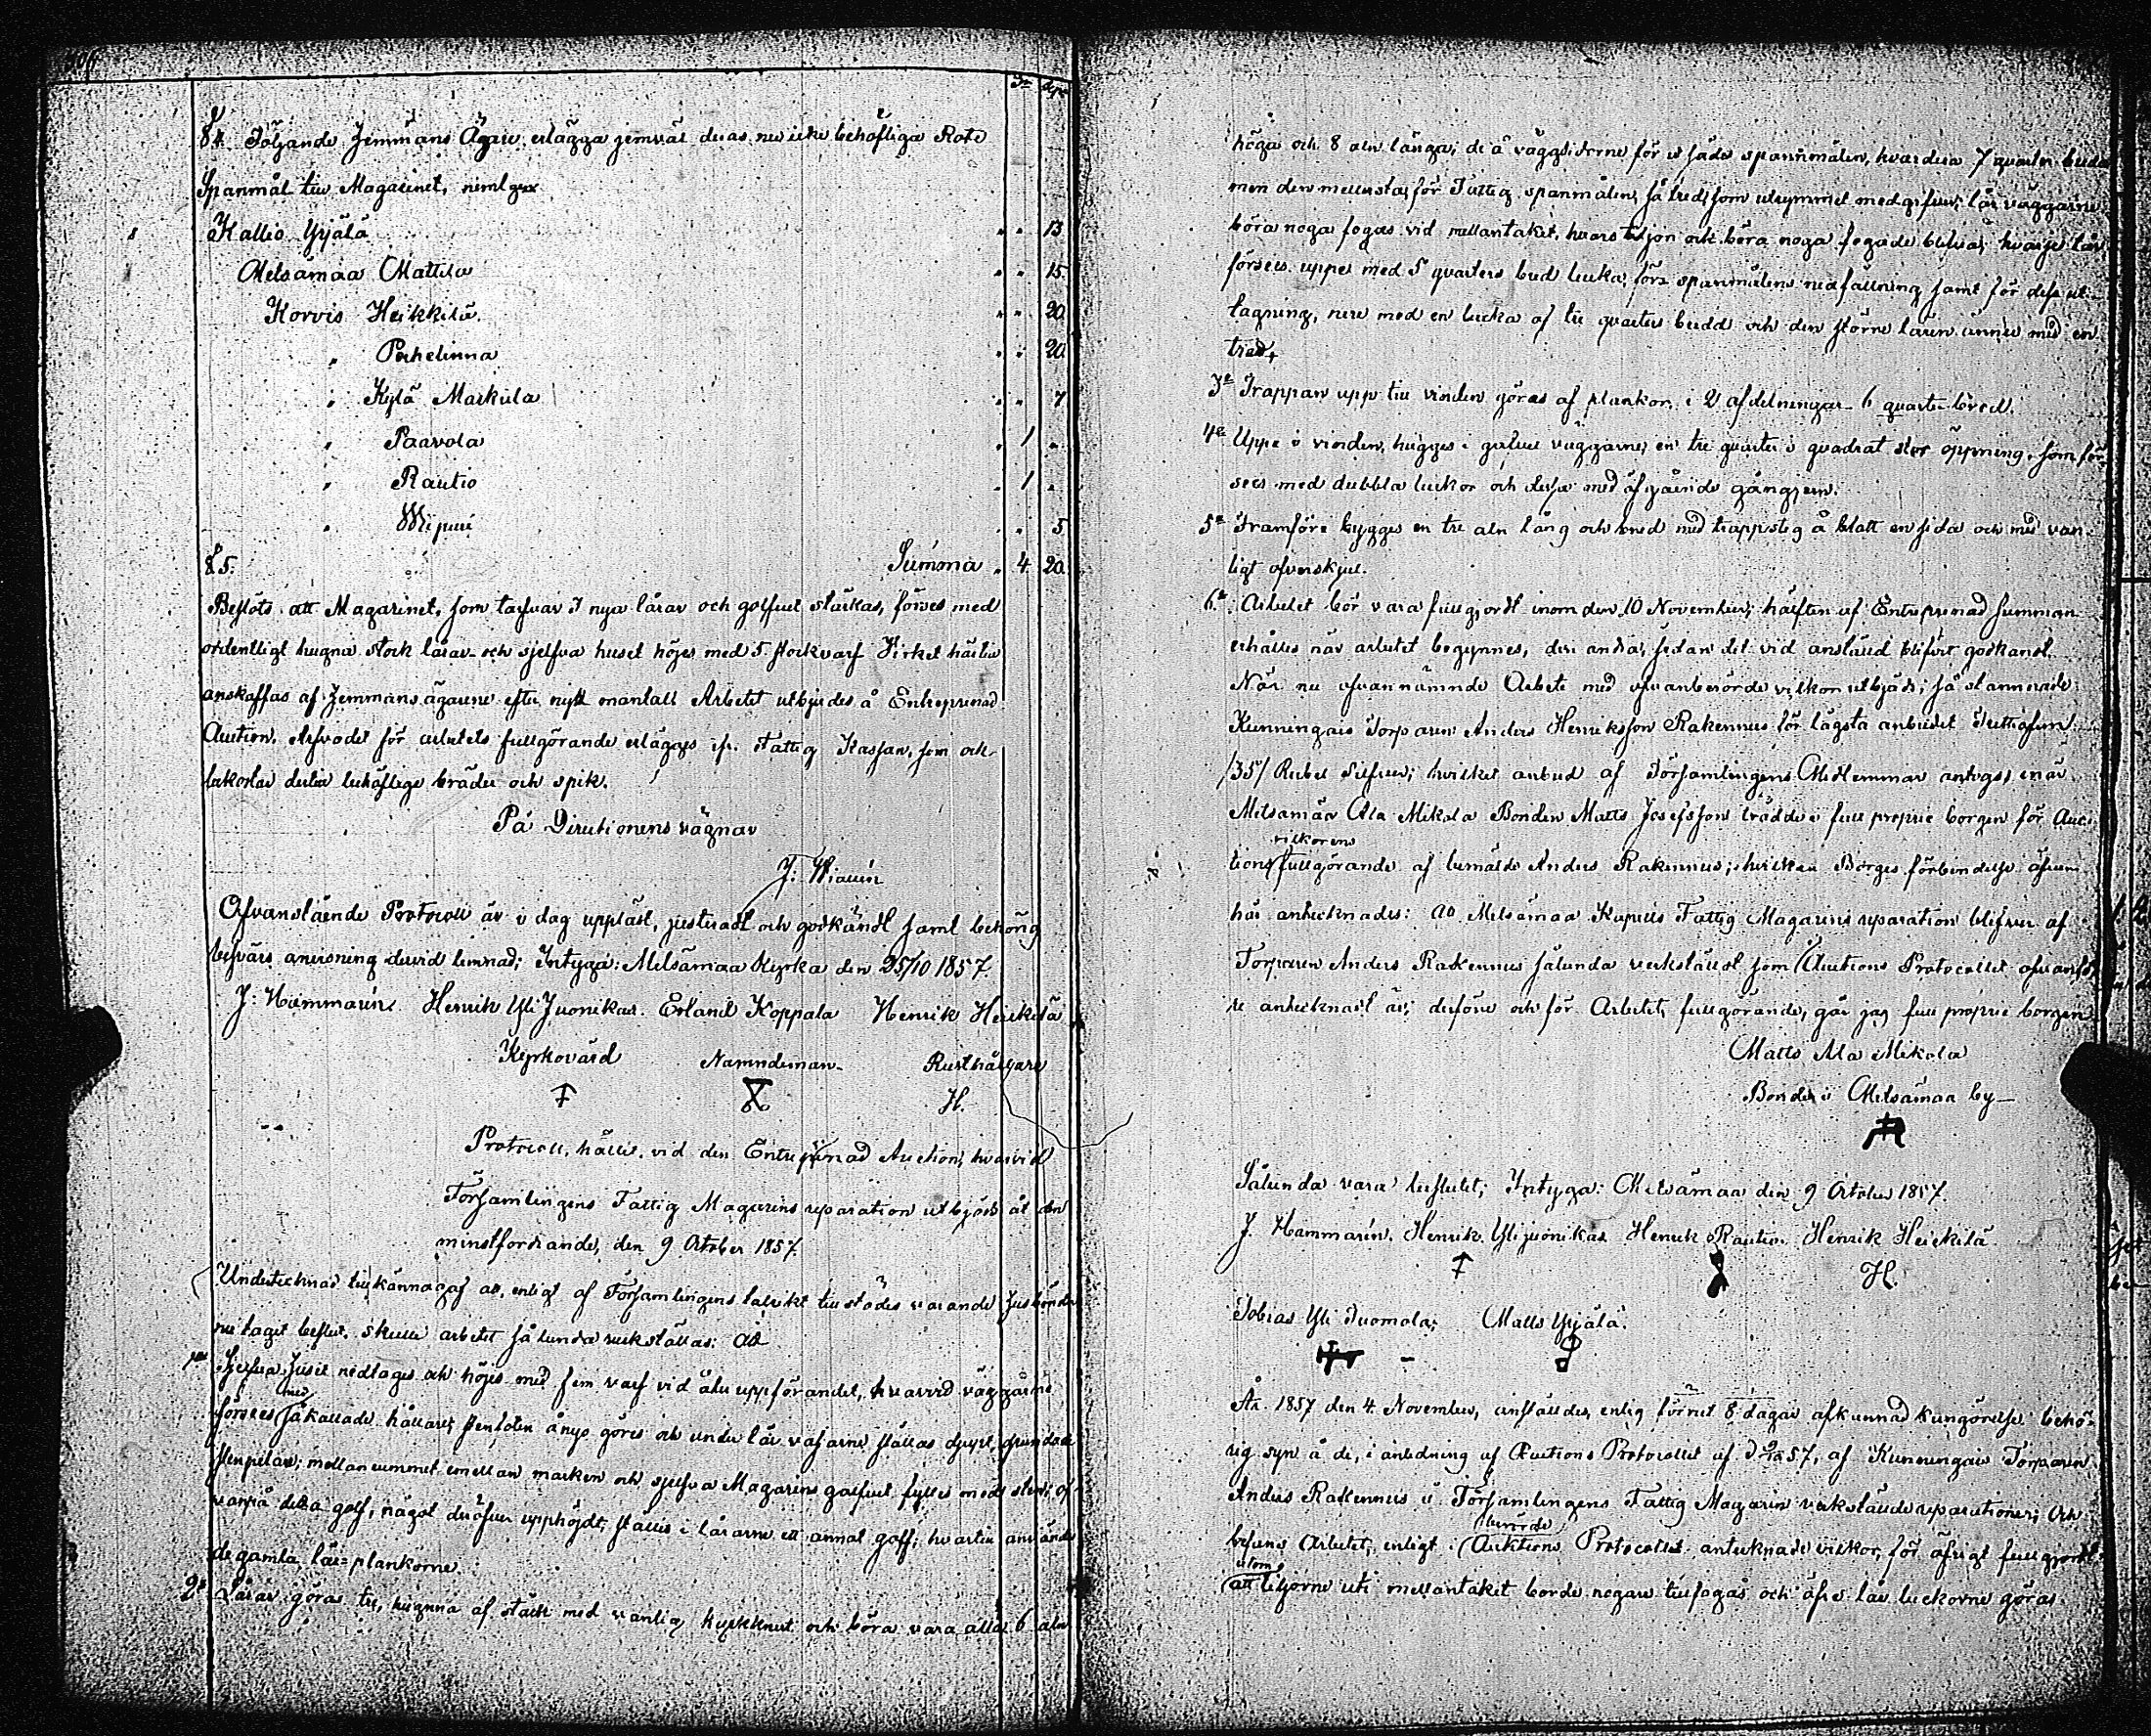 §4. Följande Hemmans Ägare erlägga jemväl deras nu icke behöfliga Rote
Spanmål till Magasinet, neml gen
Kallio Yrjälä " " 13
Metsämaa Mattila " " 15
Korvis Heikkilä " " 20
" Perhelinna " " 20
" Kylä Markula " " 7
" Paavola " 1 "
" Rautio " 1 "
" Wipuri " " 5
§5. Summa " 4 20
Beslöts att Magasinet, som tarfvar 3 nya lårar och golfvet stärkas, förses med
ordentligt hugna stock lårar och sjelfva huset höjes med 5 stockvarf Virket härtill
anskaffas af Hemmans ägarne efter nytt mantall Arbetet utbjudes å Entreprenad
Auction. Arfvodet för arbetets fullgörande erlägges ifr. Fattig Kassan, som och
bekostar dertill behöflige bräder och spik.
På Direktionens vägnar
J: Hammarén
Ofvanstående Protocoll är i dag uppläst, justeradt och godkändt samt behörig
besvärs anvisning dervid lemnad; Intyga: Metsämaa Kyrka den 25/10 1857.
J: Hammarén. Henrik Yli Juonikas. Erland Koppala Henrik Heikkilä
Kyrkovärd Nämndeman Rusthållare
H.
Protocoll, hållet vid den Entreprenad Auction, hvarvid
Församlingens Fattig Magasins reparation utbjöds åt den
minstfordrande, den 9 October 1857.
Undertecknad tillkännagaf att, enligt af Församlingens talrikt tillstädes varande Husbönder
nu taget beslut, skulle arbetet sålunda verkställas: Att
1o Sjelfva huset nedtages och höjes med fem varf vid åter uppförandet, hvarvid väggarne
förses med så kallade hållare, stenfoten å nyo göres och under lår vasarne ställas djupt grundade
stenpelare; mellanrummet emellan marken och sjelfva Magasins golfvet fylles med sten; of-
vanpå detta golf, något deröfver upphöjdt, ställes i lårarne ett annat golf; hvartill användes
de gamla lår=plankorne.
2o Lårar göras tre, hugna af stock med vanlig kyrkknut och böra vara alla 6 aln
höga och 8 aln långa; de å väggsidorne för utsäde spannmålen, hvardera 7 quarter breda
men den mellersta, för Fattig spanmålen, så bred, som utrymmet medgifver; lår väggarne
böra noga fogas vid mellantaket, hvars tiljor ock böra noga fogade blifva; hvarje lår
förses uppe med 5 quarters bred lucka, för spanmålens nedfällning samt för dess ut-
tagning, nere med en lucka af tre quarters bredd och den större låren ännu med en
tred.
3o Trappan upp till vinden göres af plankor i 2 afdelningar 6 quarter bred.
4o Uppe å vinden, hugges i gafvel väggarne, en tre quarter i quadrat stor öppning, som för-
ses med dubbla luckor och dessa med afgående gångjern.
5o Framföre bygges en tre aln lång och bred med trappsteg å blott en sida och med van-
ligt ofvanskjul.
6o Arbetet bör vara fullgjordt inom den 10 November; hälften af Entreprenad summan
erhålles när arbetet begynnes, den andra, sedan det vid anställd blifvit godkändt.
När nu ofvannämnde Arbete med ofvanberörde vilkor utbjöds; så stannade
Kunningais Torparen Anders Henriksson Rakennus för lägsta anbudet Trettiofem
/35/ Rubel Silfver; hvilket anbud af Församlingens Medlemmar antogs, enär
Metsämaa Ala Mikola Bonden Matts Josefsson trädde i full proprie borgen för Auc-
tions vilkorens fullgörande af bemälde Anders Rakennus; hvilken Borges förbindelse äfven
här antecknades: att Metsämaa Kapells Fattig Magasins reparation blifver af
Torparen Anders Rakennus sålunda verkställdt som Auctions Protocollet ofvanfö-
re antecknadt är; derföre och för Arbetet, fullgörande, går jag full proprie borgen
Matts Ala Mikola
Bonde i Metsämaa by
Sålunda vara beslutet; Intyga: Metsämaa den 9 October 1857.
J. Hammarén. Henrik Ylijuonikas Henrik Rautio. Henrik Heickilä
H.
Tobias Yli Tuomola; Matts Yrjälä.
År 1857 den 4 November, anställdes, enlig förut 8 dagar afkunnad kungörelse behö-
rig syn å de, i anledning af Auctions Protocollet af d 9/10 57, af Kunningais Torparen
Anders Rakennus å Församlingens Fattig Magasin verkställde reparationer; Och
befans Arbetet, enligt berörde Auktions Protocollet antecknade vilkor, för öfrigt fullgjordt
utom att tiljorne uti mellantaket borde nogare tillfogas och öfre lår luckorne göras